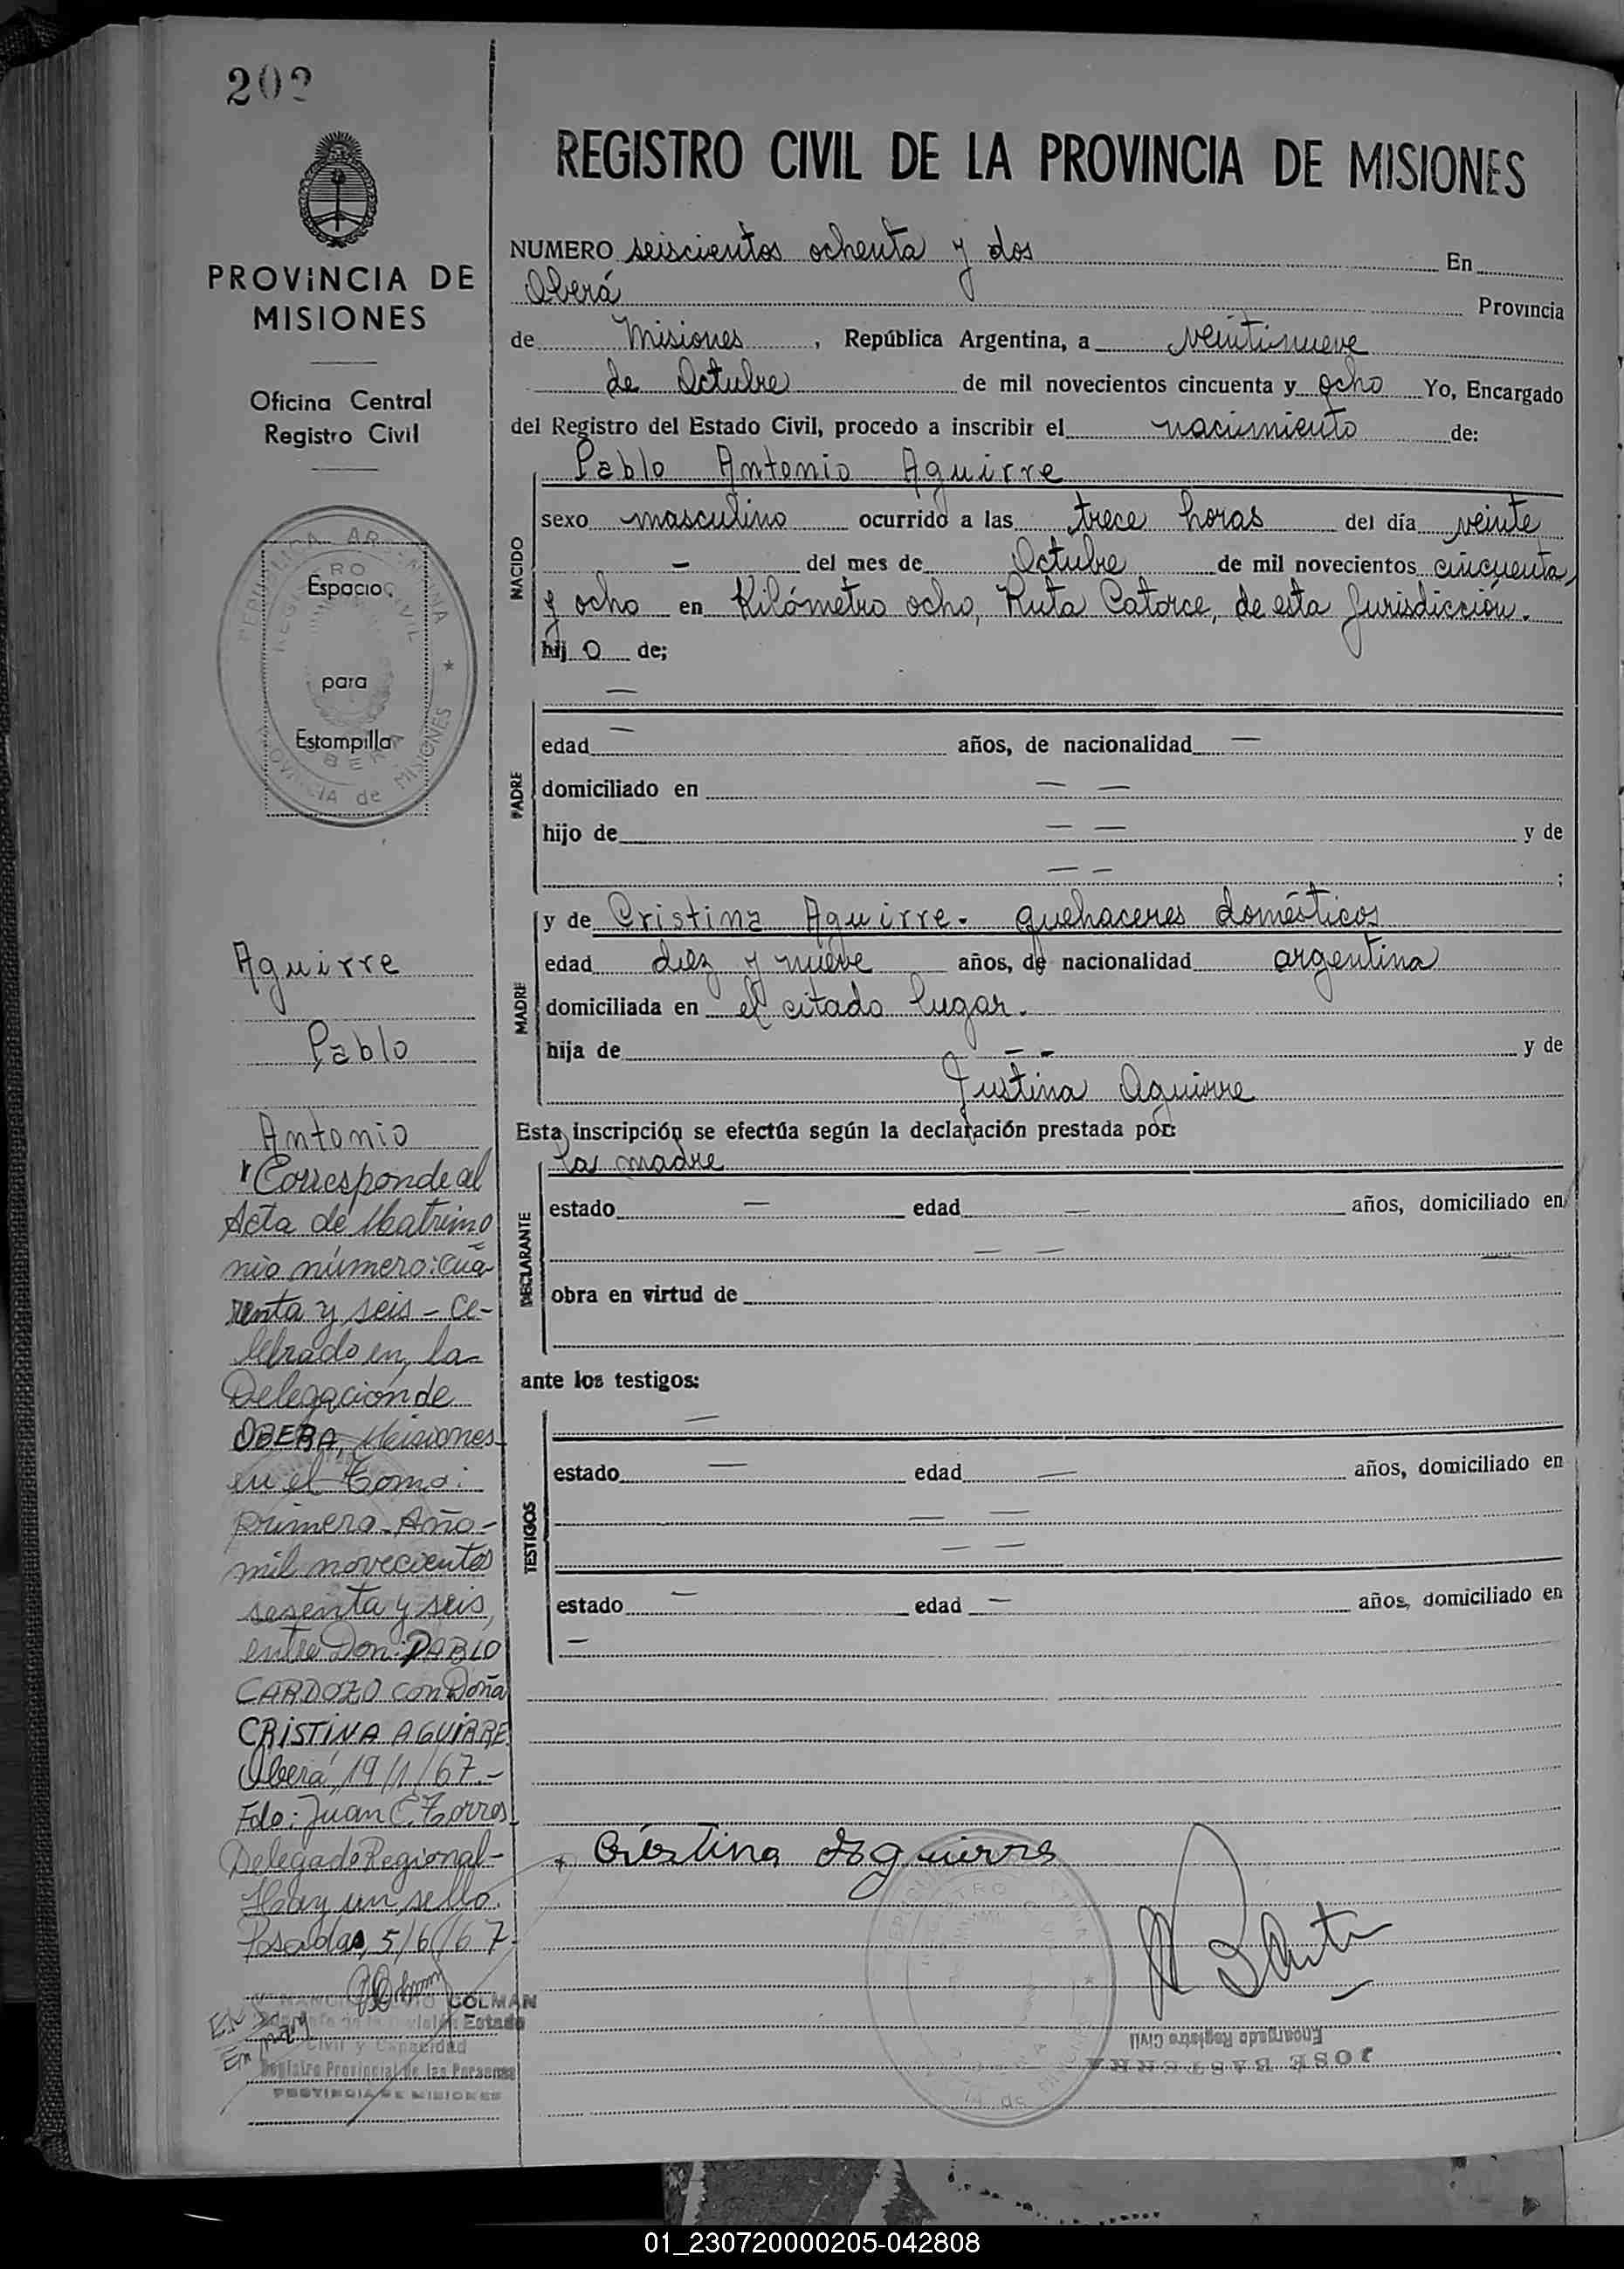 202
PROVINCIA DE
MISIONES
Oficina Central
Registro Civil
Espacio
para
Estampilla
REGISTRO CIVIL DE LA PROVINCIA DE MISIONES
NUMERO seiscientos ochenta y dos En
Oberá Provincia
de Misiones, República Argentina, a veintinueve
de Octubre de mil novecientos cincuenta y ocho Yo, Encargado
del Registro del Estado Civil, procedo a inscribir el nacimiento de:
Pablo Antonio Aguirre
NACIDO
sexo masculino ocurrido a las trece horas del día veinte
- del mes de Octubre de mil novecientos cincuenta
y ocho en Kilómetro ocho, Ruta Catorce, de esta Jurisdicción.
hijo de;
—
PADRE
edad — años, de nacionalidad —
domiciliado en — —
hijo de — — y de
— — ;
MADRE
y de Cristina Aguirre - quehaceres domésticos
edad diez y nueve años, de nacionalidad argentina
domiciliada en el citado lugar.
hija de - - y de
Justina Aguirre
Esta inscripción se efectúa según la declaración prestada por:
la madre
DECLARANTE
estado — edad — años, domiciliado en
— — —
obra en virtud de
ante los testigos:
—
TESTIGOS
estado — edad — años, domiciliado en
— —
— —
estado — edad — años, domiciliado en
—
Cristina Aguirre
JOSÉ BASTERRA
Encargado Registro Civil
Aguirre
Pablo
Antonio
Corresponde al
Acta de Matrimo
nio número: cua
renta y seis - ce-
lebrado en, la
Delegación de
OBERA, Misiones
en el Tomo:
primero - Año -
mil novecientos
sesenta y seis,
entre Don: PABLO
CARDOZO con Doña
CRISTINA AGUIRRE
Oberá, 19/1/67.-
Fdo: Juan C. Torres
Delegado Regional -
Hay un sello.
Posadas, 5/6/67-
COLMAN
Estado
Civil y Capacidad
Registro Provincial de las Personas
PROVINCIA DE MISIONES
01_230720000205-042808